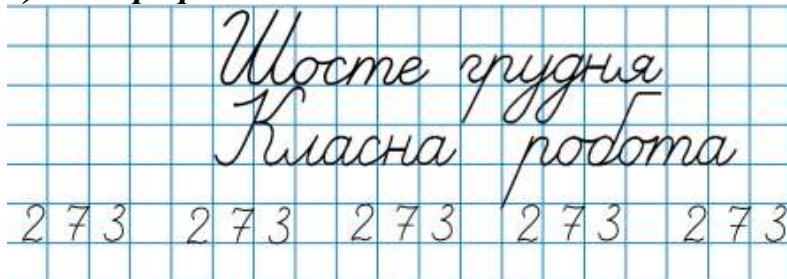 Шосте грудня
Класна робота
2 7 3 2 7 3 2 7 3 2 7 3 2 7 3